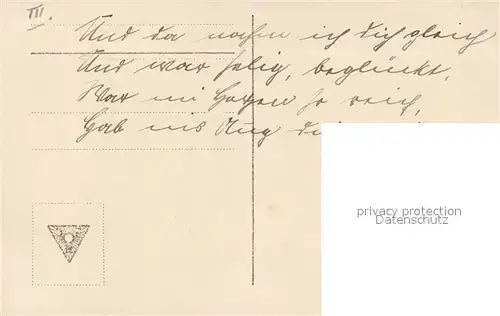 III.
Und da nahm ich dich gleich
Und war selig, beglückt,
War im Herzen so reich,
Hab ins Aug
privacy protection